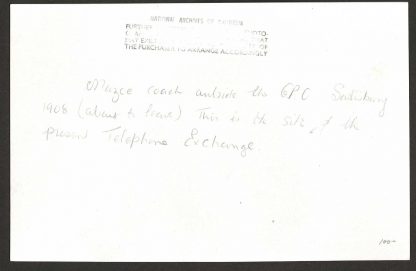 NATIONAL ARCHIVES OF
FURTHER PHOTO-
THAT
OF
THE PURCHASER TO ARRANGE ACCORDINGLY
coach outside the GPO Salisbury
1908 (about to leave) This is the site of the
present Telephone Exchange.
100-